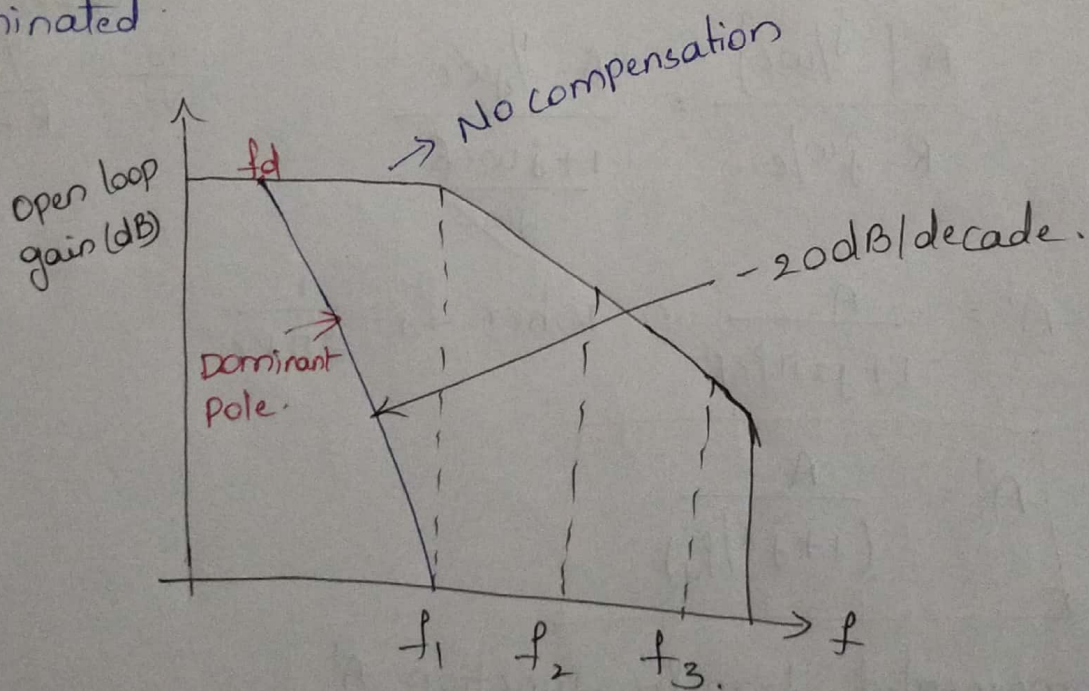 ninated.
No compensation
fd
Open loop
gain (dB)
-20dB/decade.
Dominant
Pole.
f1 f2 f3. f